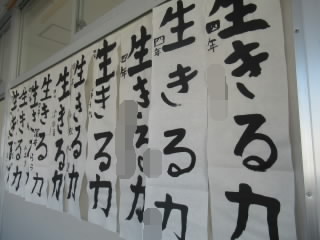 生きる力
四年
生きる力
四年
生きる力
四年
生きる力
生きる力
生きる力
生きる力
生きる力
生きる力